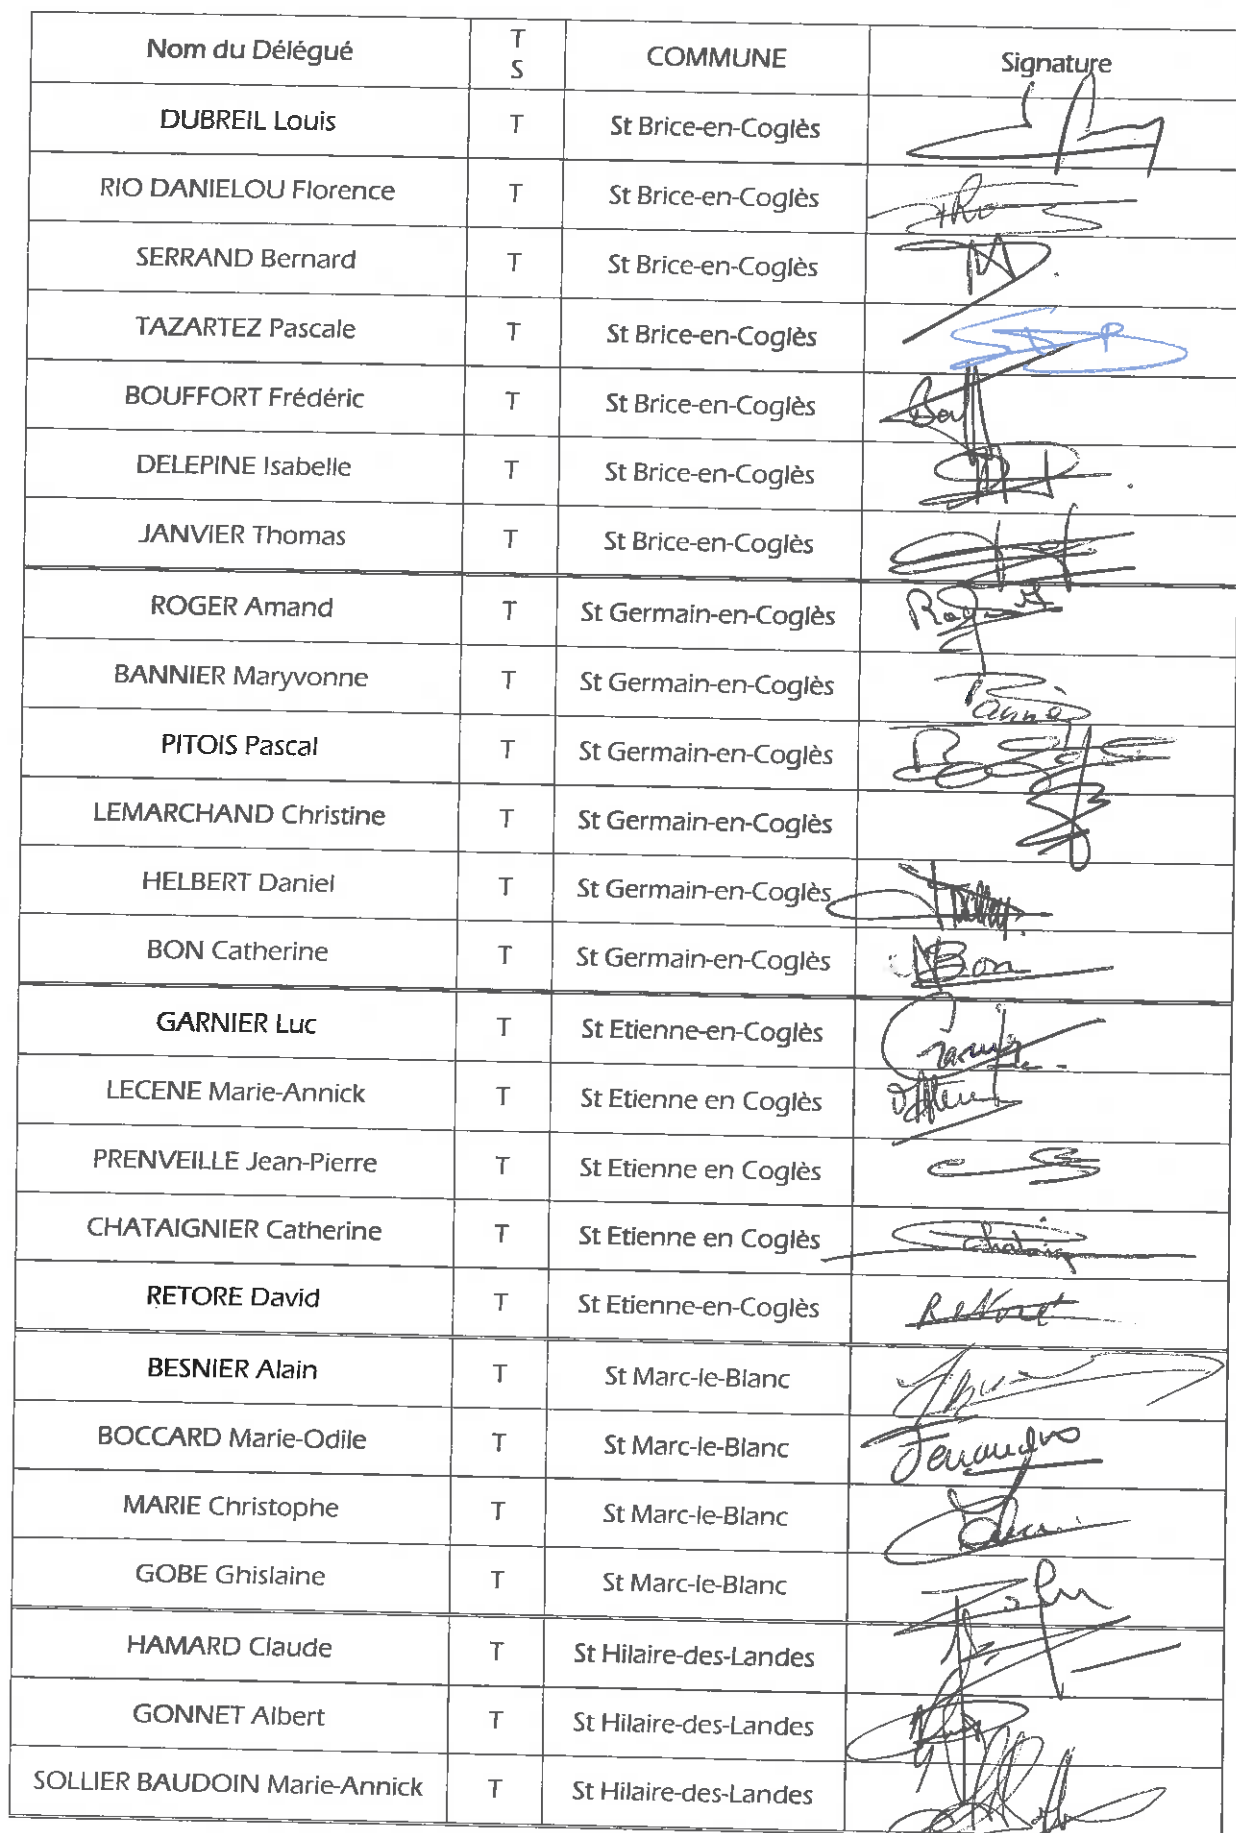 Nom du Délégué T S COMMUNE Signature
DUBREIL Louis T St Brice-en-Coglès
RIO DANIELOU Florence T St Brice-en-Coglès
SERRAND Bernard T St Brice-en-Coglès
TAZARTEZ Pascale T St Brice-en-Coglès
BOUFFORT Frédéric T St Brice-en-Coglès
DELEPINE Isabelle T St Brice-en-Coglès
JANVIER Thomas T St Brice-en-Coglès
ROGER Amand T St Germain-en-Coglès
BANNIER Maryvonne T St Germain-en-Coglès
PITOIS Pascal T St Germain-en-Coglès
LEMARCHAND Christine T St Germain-en-Coglès
HELBERT Daniel T St Germain-en-Coglès
BON Catherine T St Germain-en-Coglès Bon
GARNIER Luc T St Etienne-en-Coglès
LECENE Marie-Annick T St Etienne en Coglès
PRENVEILLE Jean-Pierre T St Etienne en Coglès
CHATAIGNIER Catherine T St Etienne en Coglès
RETORE David T St Etienne-en-Coglès
BESNIER Alain T St Marc-le-Blanc
BOCCARD Marie-Odile T St Marc-le-Blanc
MARIE Christophe T St Marc-le-Blanc
GOBE Ghislaine T St Marc-le-Blanc
HAMARD Claude T St Hilaire-des-Landes
GONNET Albert T St Hilaire-des-Landes
SOLLIER BAUDOIN Marie-Annick T St Hilaire-des-Landes